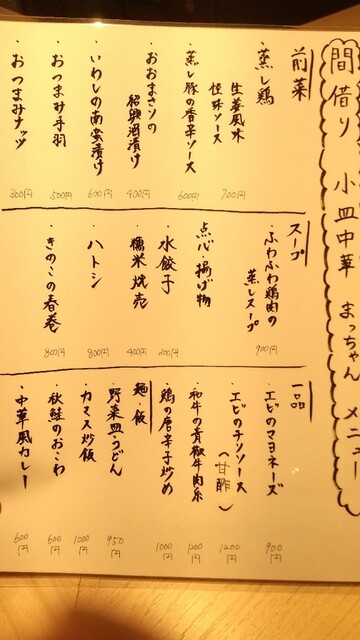 間借り 小皿中華 まっちゃん メニュー
前菜
・蒸し鶏
生姜風味
怪味ソース
700円
・蒸し豚の香辛ソース
600円
・おおまさりの
紹興酒漬け
400円
・いわしの南蛮漬け
600円
・おつまみ手羽
500円
・おつまみナッツ
300円
スープ
・ふわふわ鶏肉の
蒸しスープ
900円
点心・揚げ物
・水餃子
200円
・糯米焼売
400円
・ハトシ
800円
・きのこの春巻
800円
一品
・エビのマヨネーズ
900円
・エビのチリソース
(甘酢)
1200円
・和牛の青椒牛肉糸
1200円
・鶏の唐辛子炒め
1000円
麺・飯
・野菜皿うどん
950円
・カマス炒飯
1000円
・秋鮭のおこわ
600円
・中華風カレー
600円